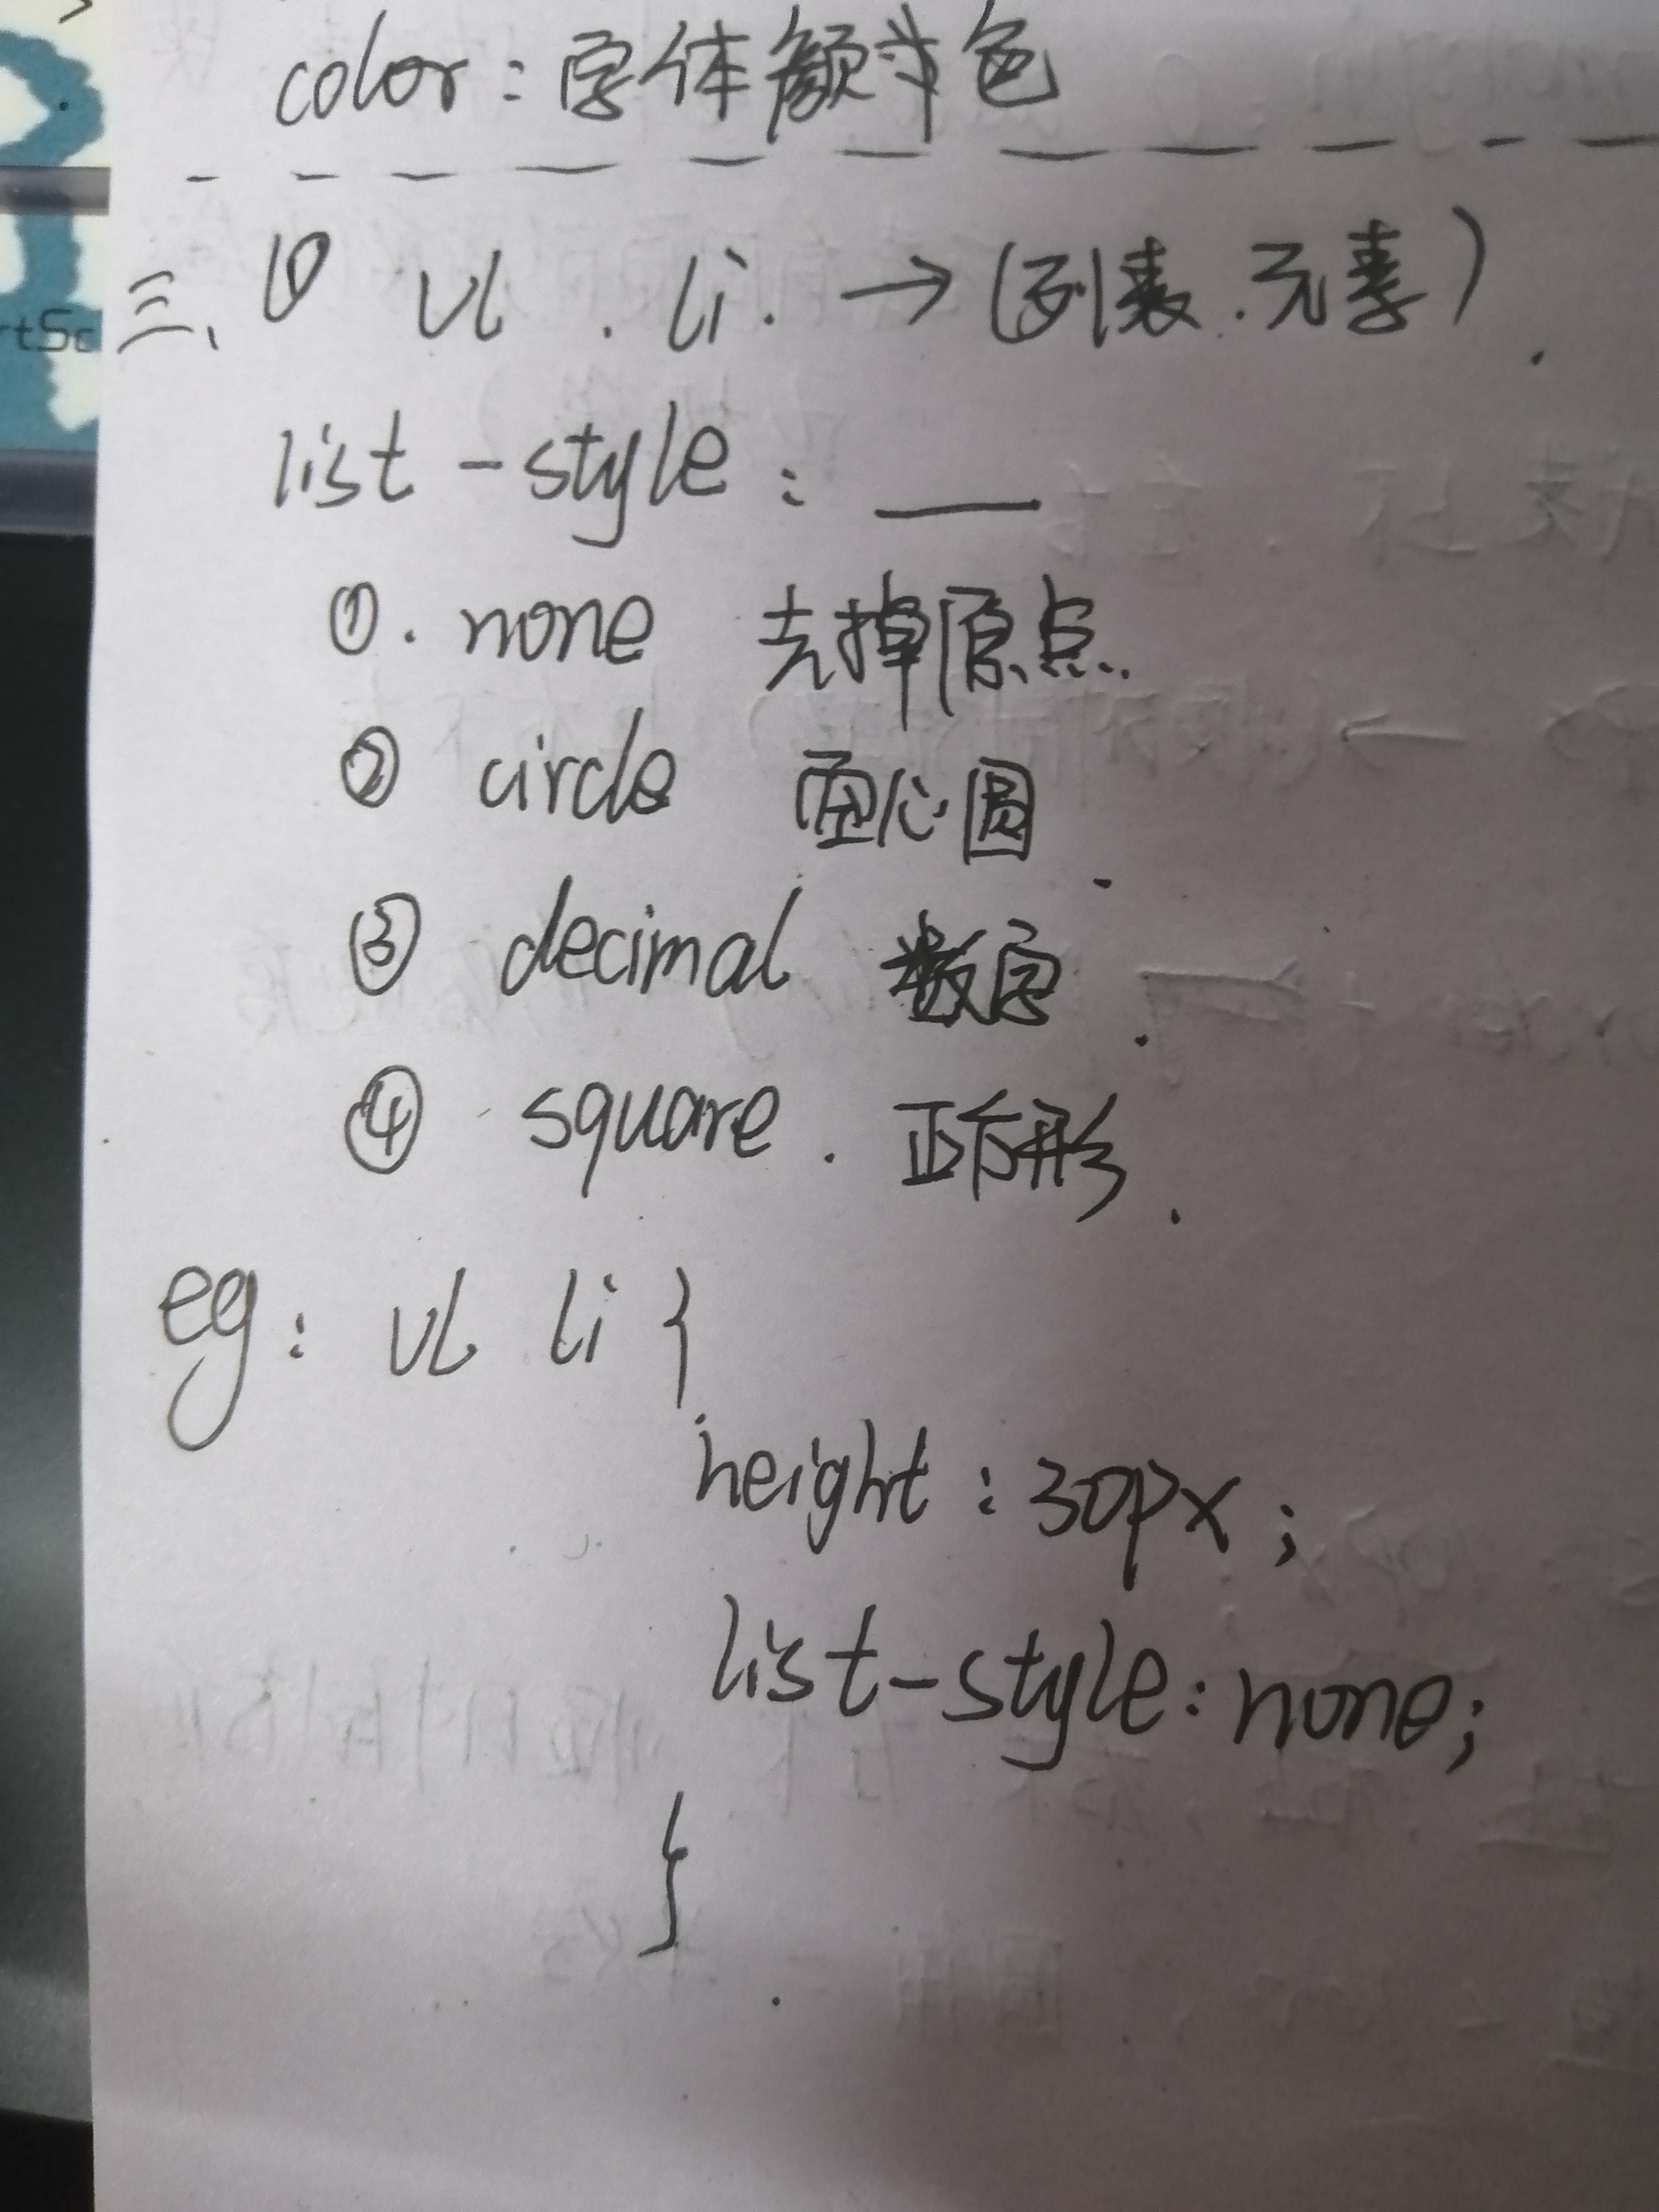 color：字体颜色
三、① ul . li. →（列表.元素）.
list-style：___
①. none 去掉原点.
② circle 面心圆.
③ decimal 数字.
④ square. 正方形.
eg: ul li {
height：30px;
list-style：none;
}
rtSc